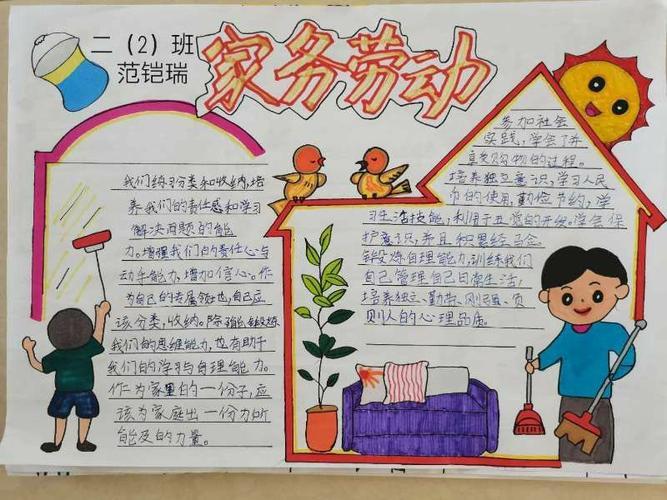 二（2）班
范铠瑞
家务劳动
我们练习分类和收纳,培
养我们的责任感和学习
解决问题的能
力。增强我们的责任心与
动手能力,增加信心。作
为自己的专属领地,自己应
该分类,收纳。除确能锻炼
我们的思维能力,也有助于
我们的学习与自理能力。
作为家里的一份子,应
该为家庭出一份力所
能及的力量。
参加社会
实践,学会了并
享受购物的过程。
培养独立意识,学习人民
币的使用,勤俭节约,学
习生活技能,利用于五觉的开发。学会保
护意识,并且积累经验
锻炼自理能力,训练我们
自己管理自己日常生活,
培养独立、勤劳、刚强、负
则人的心理品质。